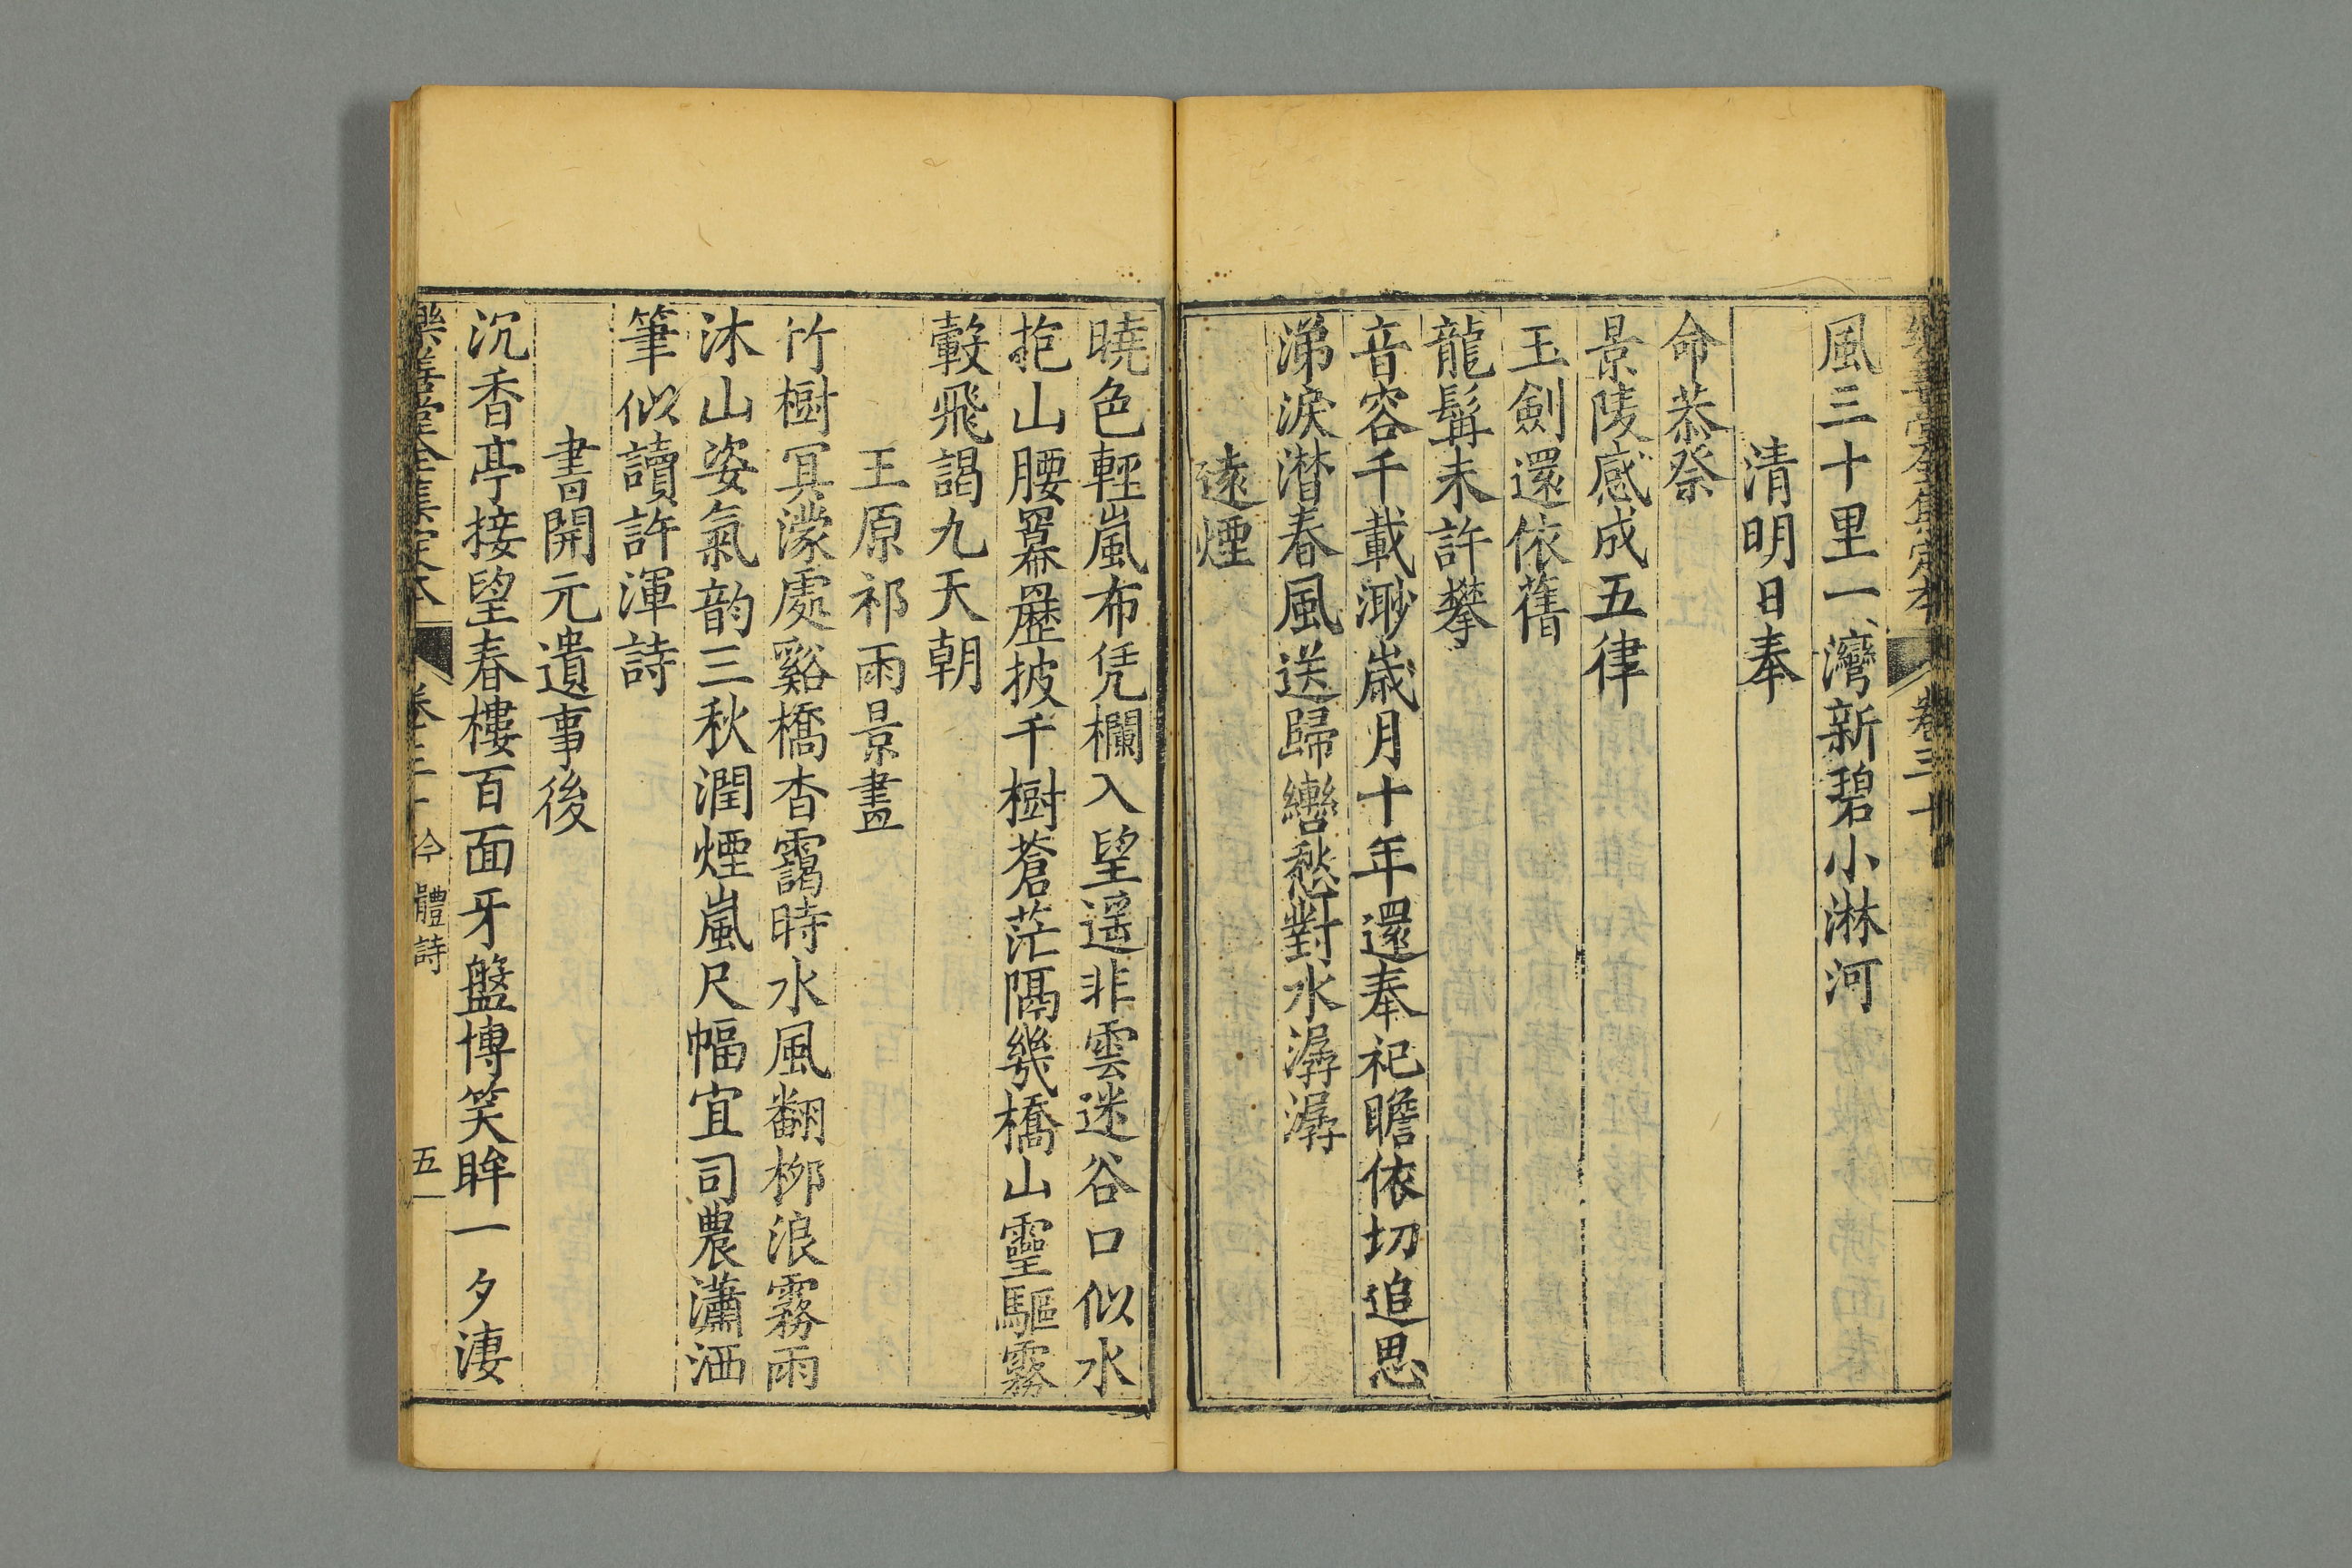 樂善堂全集定本 卷三十
風三十里一灣新碧小淋河
清明日奉
命恭祭
景陵感成五律
玉劍還依舊
龍髯未許攀
音容千載渺歲月十年還奉祀瞻依切追思
涕淚潸春風送歸轡愁對水潺潺
遠煙
曉色輕嵐布凭欄入望遥非雲迷谷口似水
抱山腰羃歷披千樹蒼茫隔幾橋山靈驅霧
轂飛謁九天朝
王原祁雨景畫
竹樹冥濛處谿橋杳靄時水風翻栁浪霧雨
沐山姿氣韵三秋潤煙嵐尺幅宜司農瀟洒
筆似讀許渾詩
書開元遺事後
沉香亭接望春樓百面牙盤博笑眸一夕淒
樂善堂全集定本 卷三十 今體詩 五